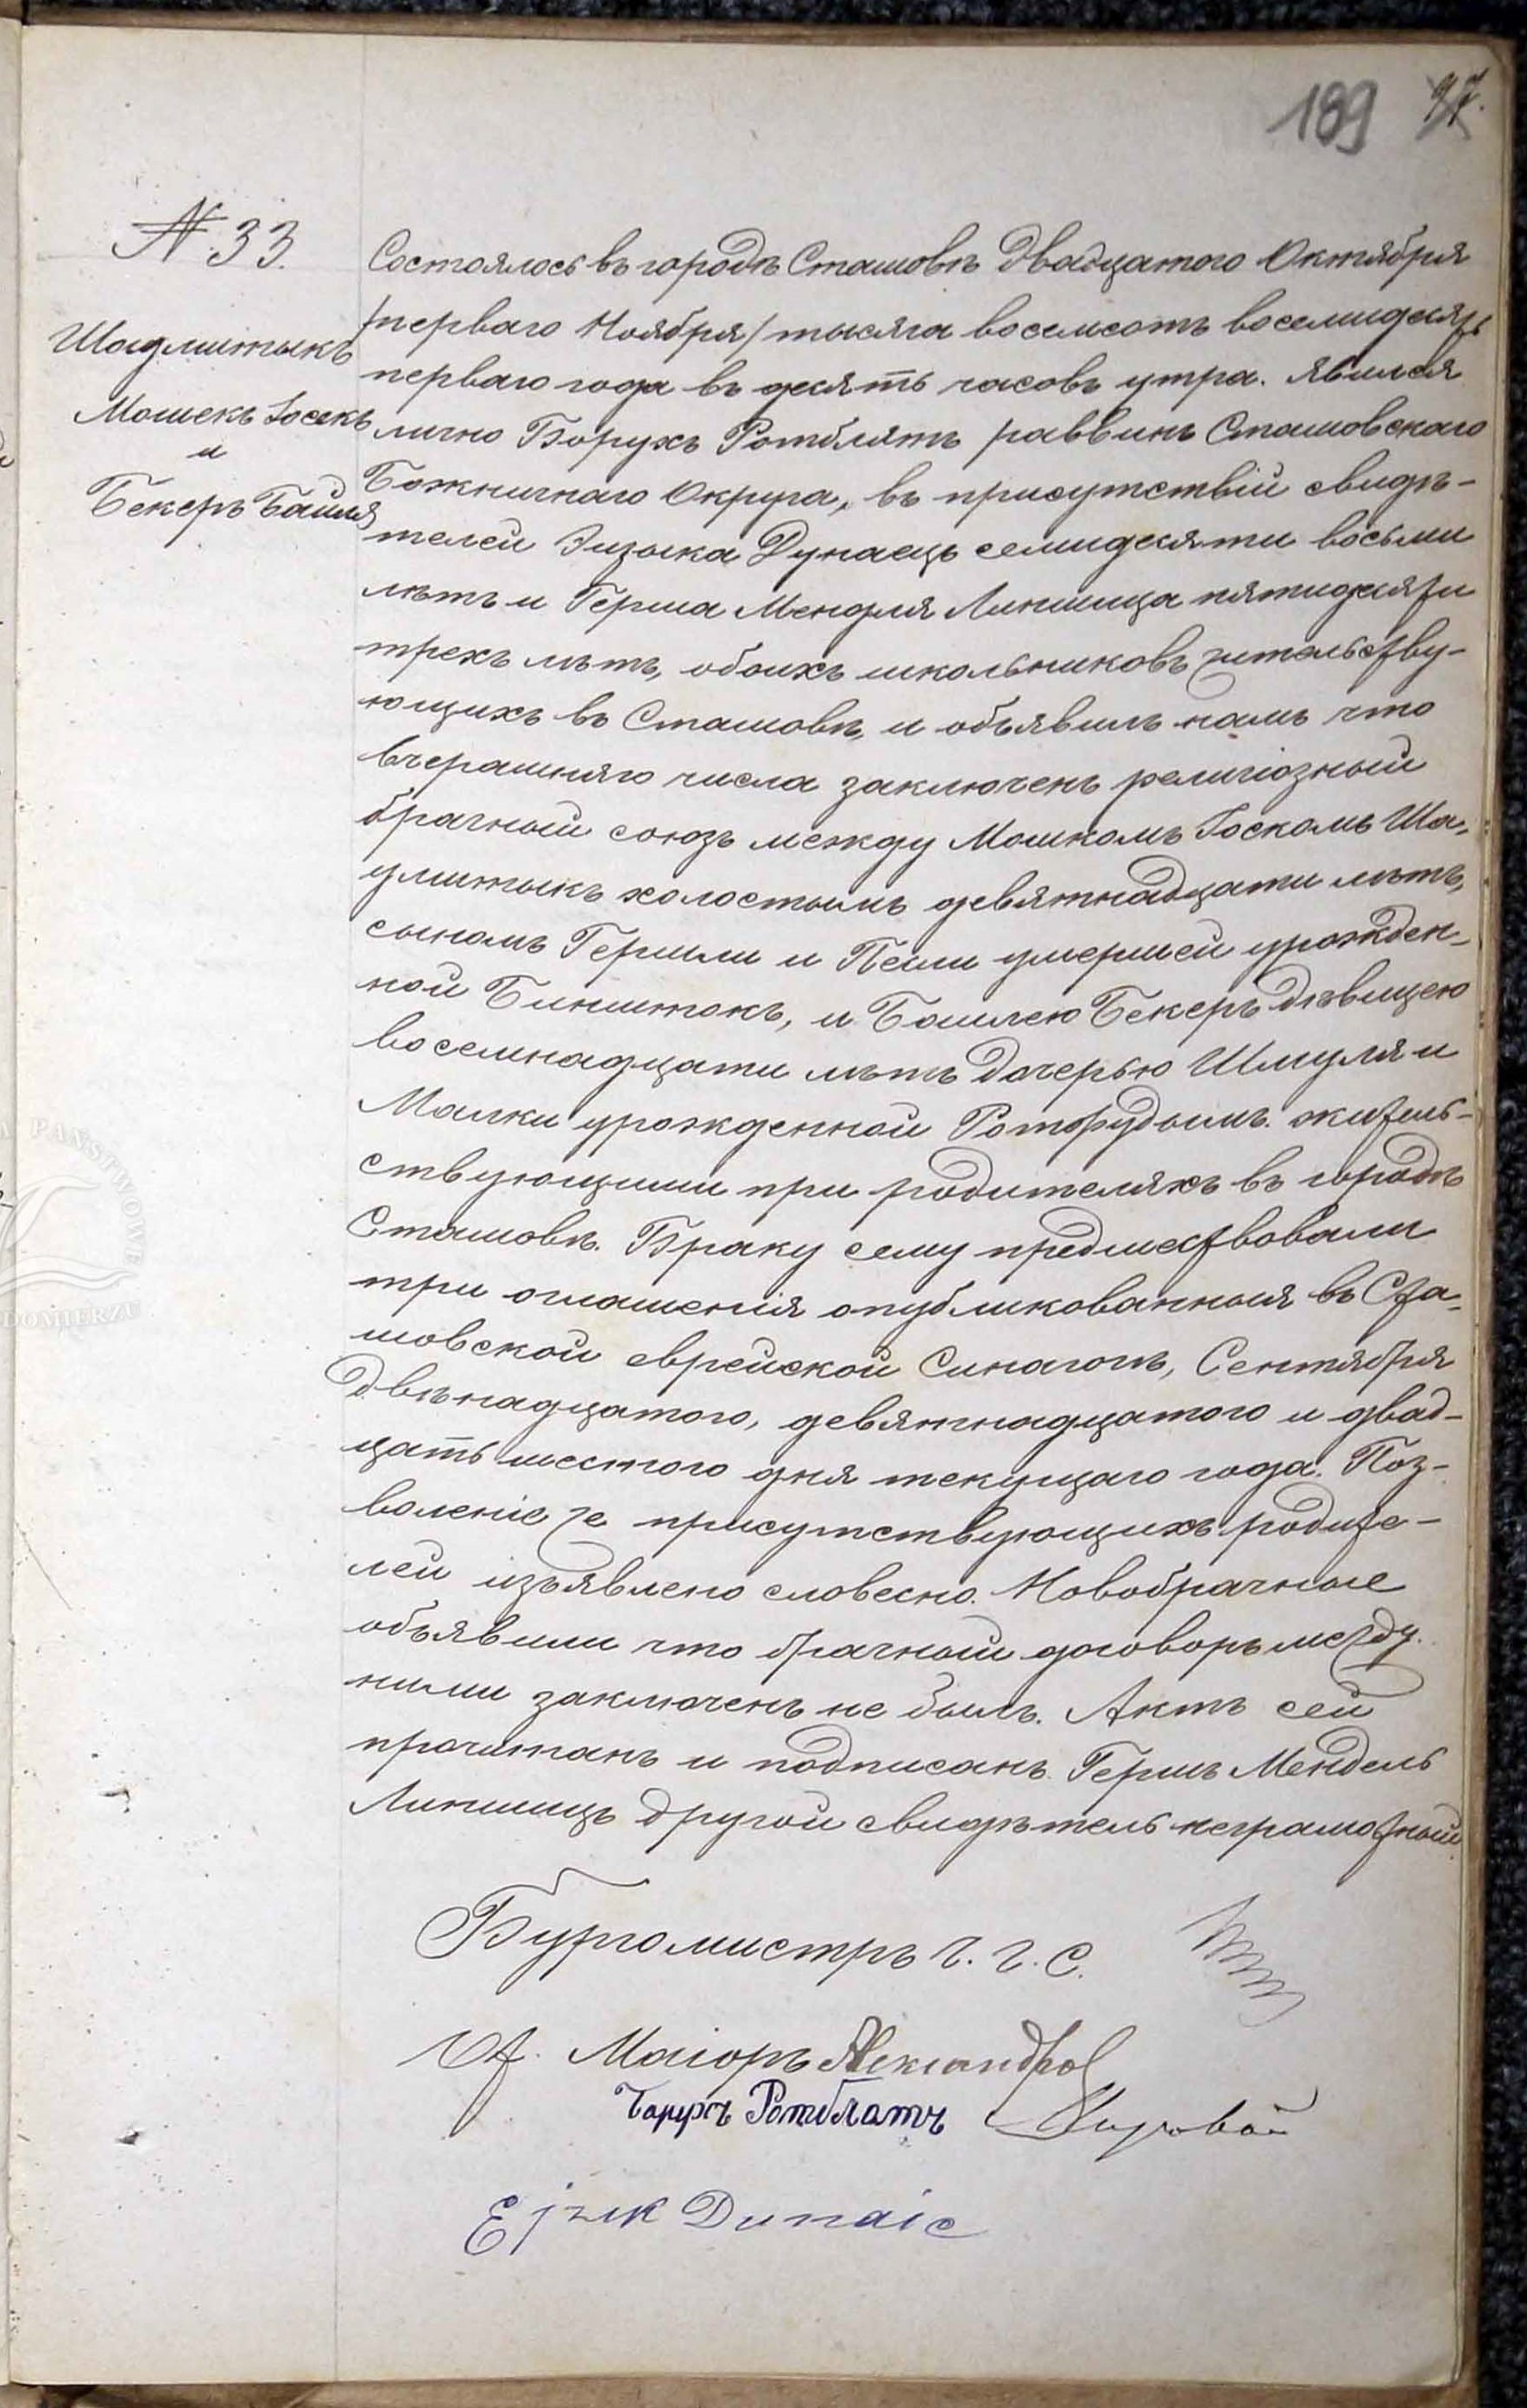 189 97.
№ 33.
Шаумитыкъ
Мошекъ Іосекъ
и
Бекеръ Байля
Состоялось въ городѣ Сташовѣ Двадцатого Октября
/перваго Ноября/ тысяча восемсотъ восемидесять
перваго года въ десять часовъ утра. Явился
лично Борухъ Ротблятъ раввинъ Сташовскаго
Божничнаго Округа, въ присутствіи свидѣ-
телей Эизыка Дунаецъ семидесяти восьми
лѣтъ и Герша Мендля Линшица пятидесяти
трехъ лѣтъ, обоихъ школьниковъ жительству-
ющихъ въ Сташовѣ, и объявилъ намъ что
вчерашняго числа заключенъ религіозный
брачный союзъ между Мошкомъ Іоскомъ Ша-
умитыкъ холостымъ девятнадцати лѣтъ,
сыномъ Гершли и Песли умершей урожден-
ной Бинштокъ, и Байлею Бекеръ дѣвицею
восемнадцати лѣтъ дочерью Шмуля и
Малки урожденной Ротфудымъ. житель-
ствующими при родителяхъ въ городѣ
Сташовѣ. Браку сему предшествовали
три оглашенія опубликованныя въ Ста-
шовской еврейской Синагогѣ, Сентября
Двѣнадцатого, девятнадцатого и двад-
цать шестого дня текущаго года. Поз-
воленіе же присутствующихъ родите-
лей изъявлено словесно. Новобрачные
объявили что брачный договоръ между
ними заключенъ не былъ. Актъ сей
прочитанъ и подписанъ. Гершъ Мендель
Линшицъ другой свидѣтель неграмотный.
Бургомистръ г. г. С.
Маіоръ Александров
Борухъ Ротблатъ
Ejzik Dunaic